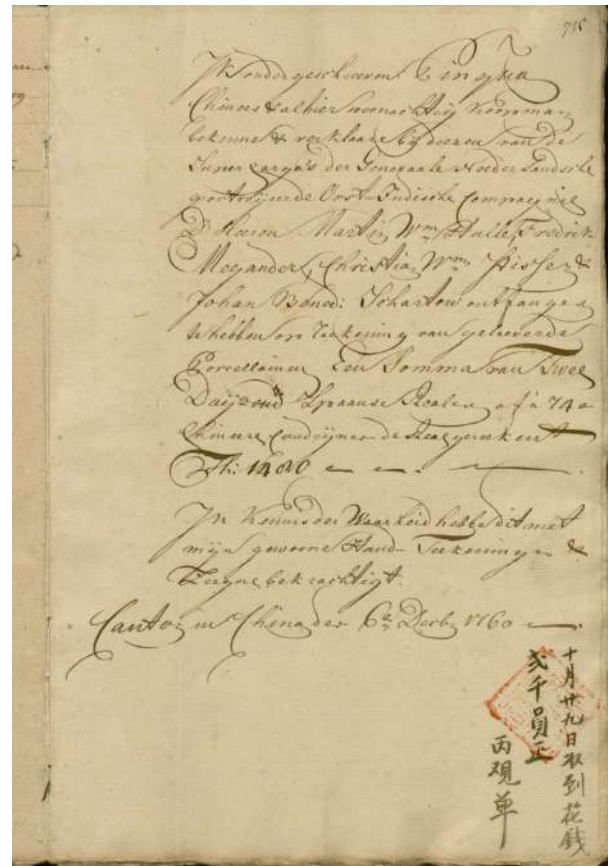 715
Ik ondergeschreven Pinqua
Chinees & alhier woonachtig Koopman
bekenne & verklaare bij deezen van de
Supercarga's der Generaale Nederlandsche
geoctroijeerde Oost-Indische Compagnie
D' Heeren Martin Wm Hulle, Fredrik
Meijander, Christian Wm Fisser &
Johan Bened: Scharton ontfangen
te hebben op reekening van geleeverde
Porcellainen Een Somma van Twee
Duijzend Spaanse Realen a f'a 74
Chineese Condrijnen de Reael gereekent
Th: 1480
In Kennisse der Waarheid hebbe dit met
mijn gewoone Hand-Teekeninge &
Zeegne bekrachtigt.
Canton in China den 6e Decb: 1760
十月廿九日收到花錢
弍千員正
丙觀单